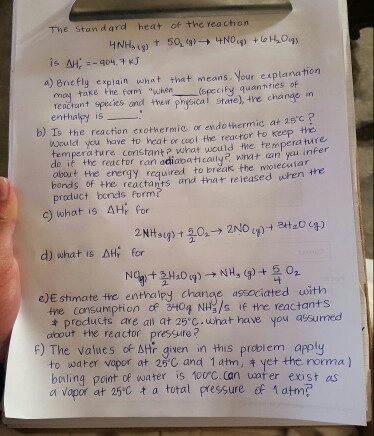 The standard heat of the reaction
4NH₃(g) + 5O₂(g) → 4NO(g) + 6H₂O(g)
is ΔHᵣ° = -904.7 kJ
a) Briefly explain what that means. Your explanation
may take the form "when ___ (specify quantities of
reactant species and their physical state), the change in
enthalpy is ___."
b) Is the reaction exothermic or endothermic at 25°C?
Would you have to heat or cool the reactor to keep the
temperature constant? What would the temperature
do if the reactor ran adiabatically? what can you infer
about the energy required to break the molecular
bonds of the reactants and that released when the
product bonds form?
c) what is ΔHᵣ° for
2NH₃(g) + 5/2 O₂ → 2NO(g) + 3H₂O(g)
d) what is ΔHᵣ° for
NO(g) + 3/2 H₂O(g) → NH₃(g) + 5/4 O₂
e) Estimate the enthalpy change associated with
the consumption of 340g NH₃/s if the reactants
& products are all at 25°C. what have you assumed
about the reactor pressure?
F) The values of ΔHᵣ° given in this problem apply
to water vapor at 25°C and 1 atm, & yet the normal
boiling point of water is 100°C. Can water exist as
a vapor at 25°C & a total pressure of 1 atm?